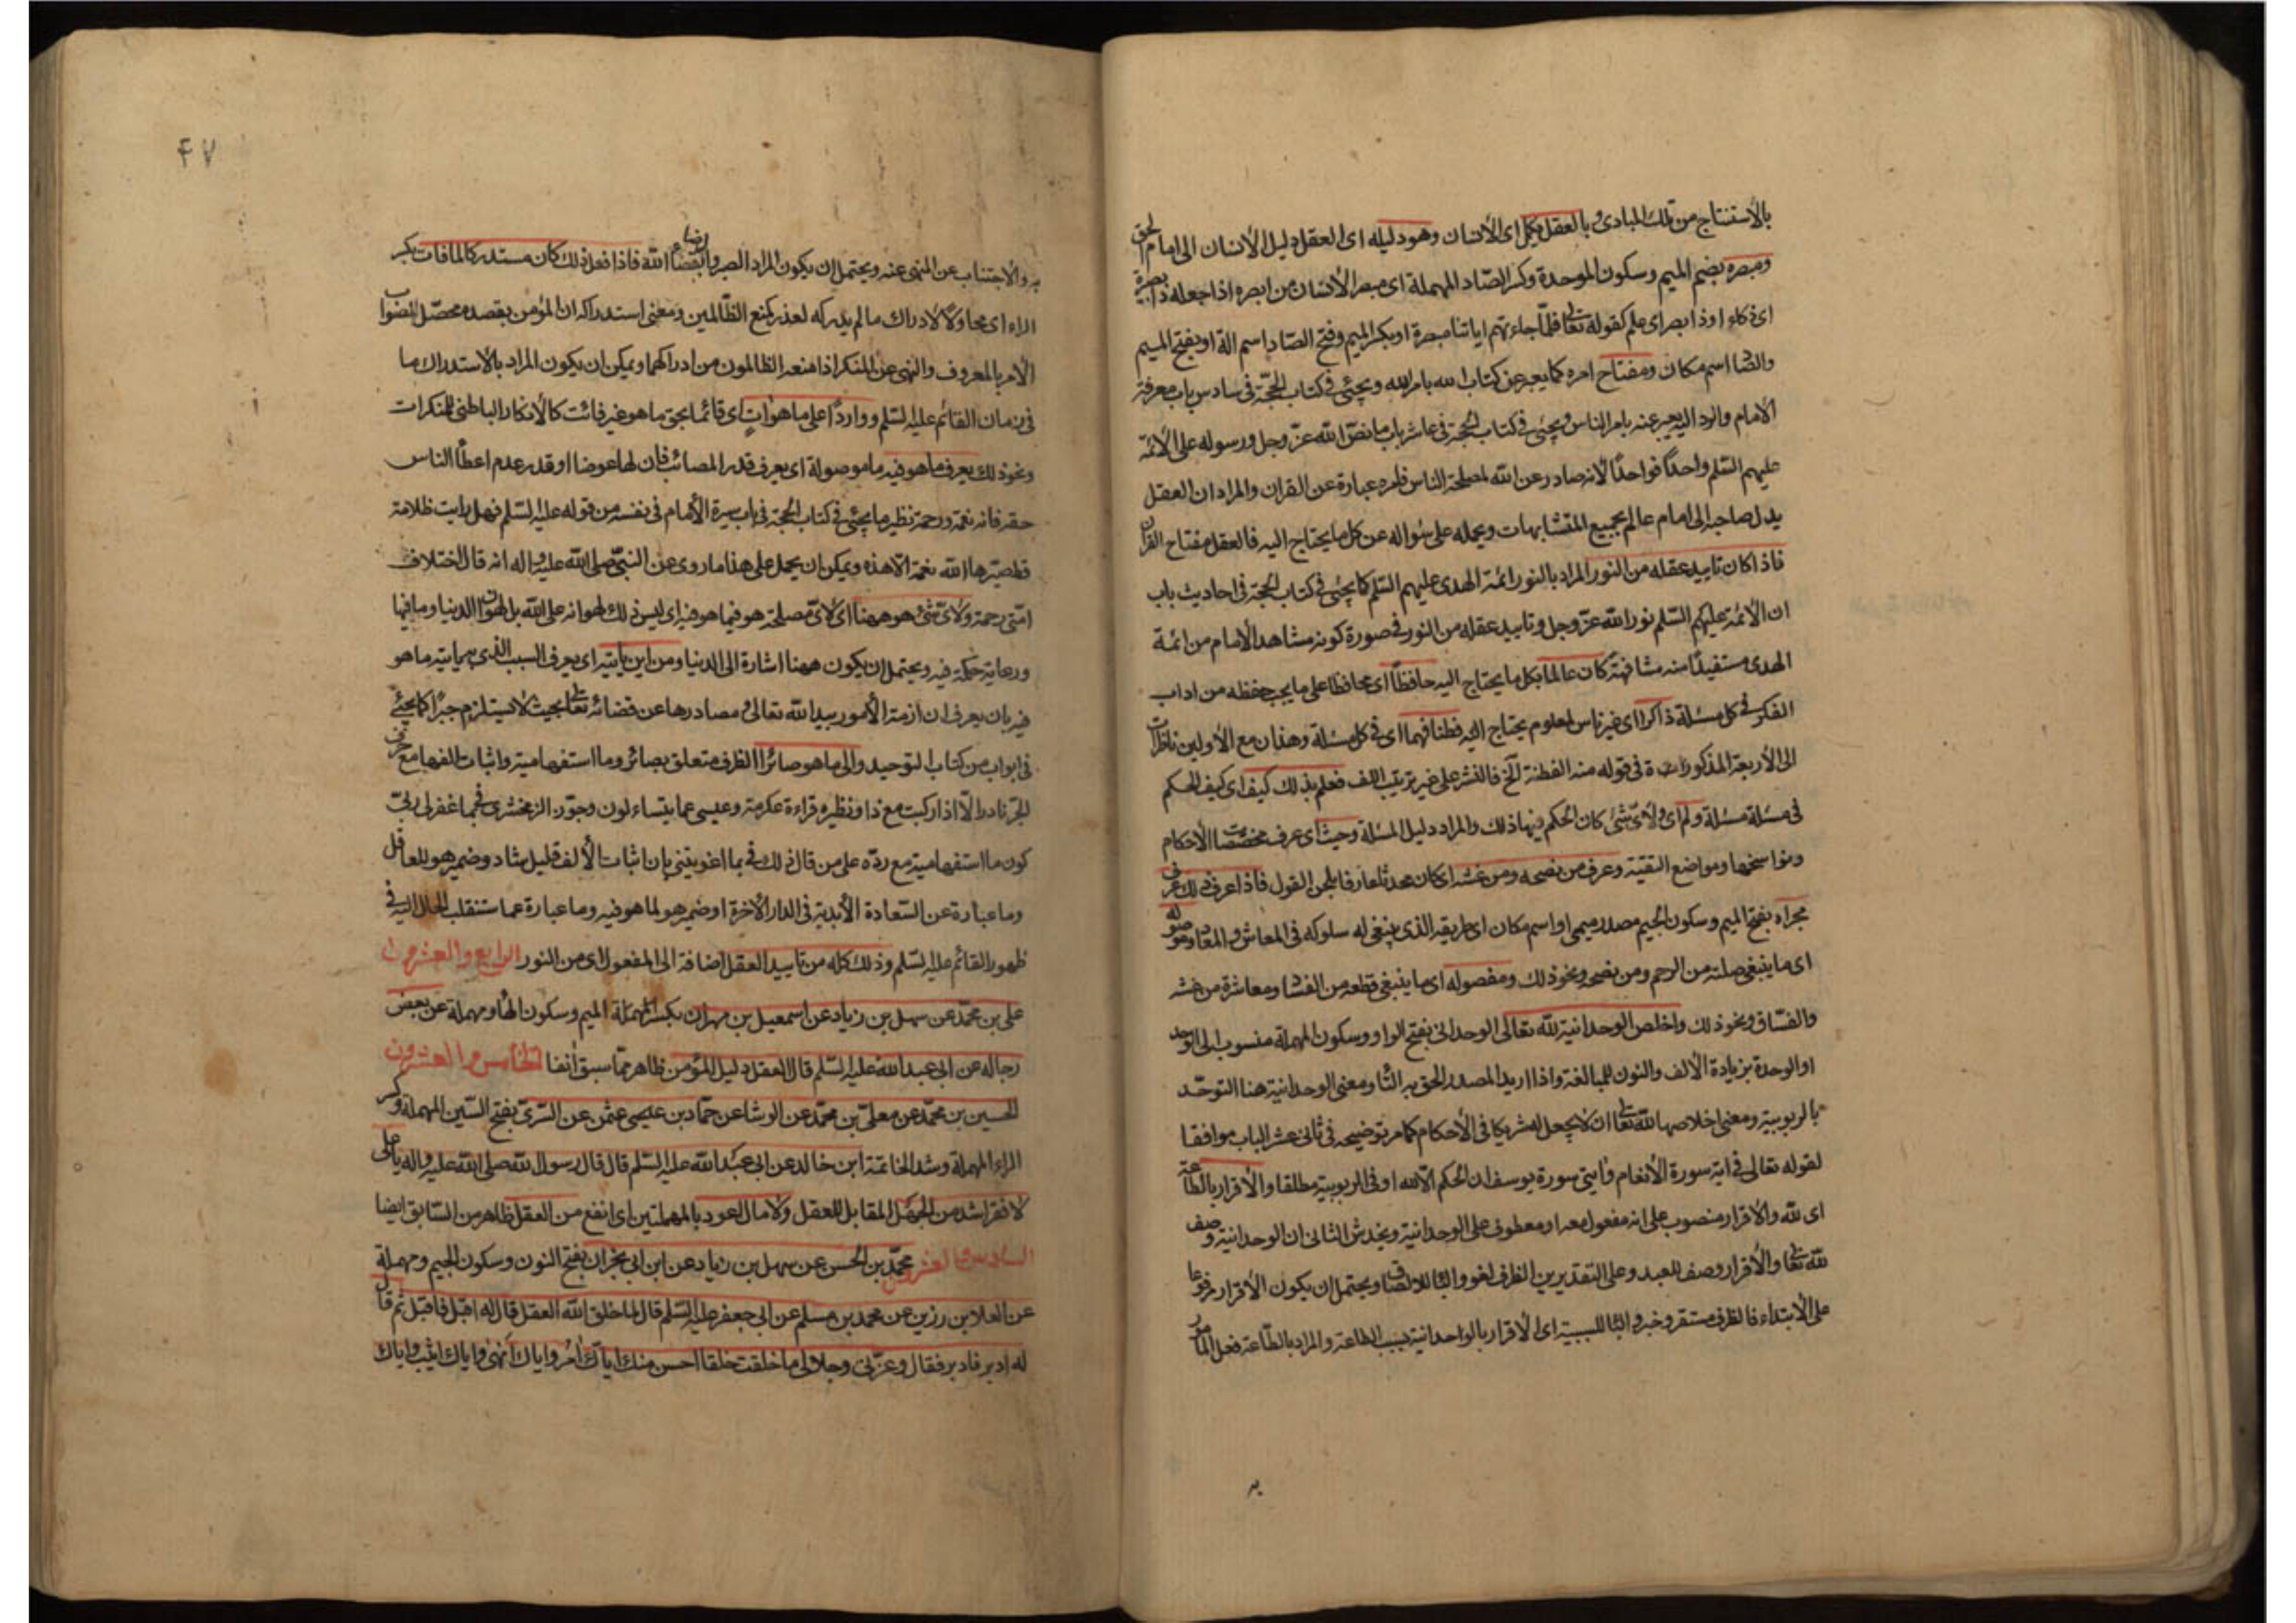 بالاستنتاج من تلك المبادى وبالعقل يكمل اى الانسان وهو دليله اى العقل دليل الانسان الى امام الحق
ومبصره بضم الميم وسكون الموحدة وكسر الصاد المهملة اى مبصر الانسان من ابصره اذا جعله ذا بصيرة
اى ذكاء او ذا بصر اى علم كقوله تعالى فلما جاءتهم اياتنا مبصرة او بكسر الميم وفتح الصاد اسم الة او بفتح الميم
والصاد اسم مكان ومفتاح امره كما يعبر عن كتاب الله بامر الله ويجئ فى كتاب الحجة فى سادس باب معرفة
الامام والرد اليه يعبر عنه بامر الناس ويجئ فى كتاب الحجة فى عاشر باب ما نص الله عز وجل ورسوله على الائمة
عليهم السلم واحدا فواحدا لانه صادر عن الله لمصلحة الناس فامره عبارة عن القران والمراد ان العقل
يدل صاحبه الى امام عالم بجميع المتشابهات ويحمله على سواله عن كل ما يحتاج اليه فالعقل مفتاح القران
فاذا كان تاييد عقله من النور المراد بالنور ائمة الهدى عليهم السلم كما يجئ فى كتاب الحجة فى احاديث باب
ان الائمة عليهم السلم نور الله عز وجل وتاييد عقله من النور فى صورة كونه مشاهد الامام من ائمة
الهدى مستفيدا منه مشافهة كان عالما بكل ما يحتاج اليه حافظا اى محافظا على ما يجب حفظه من اداب
الفكر فى كل مسئلة ذاكرا اى غير ناس لمعلوم يحتاج اليه فطنا فهما اى فى كل مسئلة وهذان مع الاولين ناظرات
الى الاربعة المذكورات فى قوله منه الفطنة الخ فالنشر على غير ترتيب اللف فعلم بذلك كيف اى كيف الحكم
فى مسئلة مسئلة ولم اى ولاى شئ كان الحكم فيها ذلك والمراد دليل المسئلة وحيث اى عرف مخصصات الاحكام
ونواسخها ومواضع التقية وعرف من نصحه ومن غشه اى كان محدثا عارفا بلحن القول فاذا عرف ذلك عرف
مجراه بفتح الميم وسكون الجيم مصدر ميمى او اسم مكان اى طريقه الذى ينبغى له سلوكه فى المعاش والمعاد وموصوله
اى ما ينبغى صلته من الرحم ومن نصحه ونحو ذلك ومفصوله اى ما ينبغى قطعه من الفساد ومعاشرة من غشه
والفساق ونحو ذلك واخلص الوحدانية لله تعالى الوحدانى بفتح الواو وسكون المهملة منسوب الى الوحد
او الوحدة بزيادة الالف والنون للمبالغة واذا اريد المصدر الحق به التاء ومعنى الوحدانية هنا التوحد
بالربوبية ومعنى اخلاصها لله تعالى ان لا يجعل له شريكا فى الاحكام كما مر توضيحه فى ثانى عشر الباب موافقا
لقوله تعالى فى اية سورة الانعام وايتى سورة يوسف ان الحكم الا لله او فى الربوبية مطلقا والاقرار بالطاعة
اى لله والاقرار منصوب على انه مفعول معه او معطوف على الوحدانية ويخدش الثانى ان الوحدانية وصف
لله تعالى والاقرار وصف للعبد وعلى التقديرين الظرف لغو والباء للالصاق ويحتمل ان يكون الاقرار مرفوعا
على الابتداء فالظرف مستقر وخبر والباء للسببية اى الاقرار بالواحدانية بسبب الطاعة والمراد بالطاعة فعل المامور
به
٤٧
به والاجتناب عن المنهى عنه ويحتمل ان يكون المراد الصبر والرضاء بقضاء الله فاذا فعل ذلك كان مستدركا لما فات بكسر
الراء اى محاولا لادراك ما لم يدركه لعذر كمنع الظالمين ومعنى استدراكه ان المؤمن بقصده محصل لثواب
الامر بالمعروف والنهى عن المنكر اذا منعه الظالمون من ادراكهما ويمكن ان يكون المراد بالاستدراك ما
فى زمان القائم عليه السلم وواردا على ما هو ات اى قائما بحق ما هو غير فائت كالانكار الباطنى للمنكرات
ونحو ذلك يعرف ما هو فيه ما موصولة اى يعرف قدر المصائب فان لها عوضا او قدر عدم اعطاء الناس
حقه فانه نعمة ورحمة نظير ما يجئ فى كتاب الحجة فى باب سيرة الامام فى نفسه من قوله عليه السلم فهل رايت ظلامة
قط صيرها الله نعمة الا هذه ويمكن ان يحمل على هذا ما روى عن النبى صلى الله عليه واله انه قال اختلاف
امتى رحمة ولاى شئ هو ههنا اى لاى مصلحة هو فيما هو فيه اى ليس ذلك لهوانه على الله بل لهوان الدنيا وما فيها
ورعاية حكمة فيه ويحتمل ان يكون ههنا اشارة الى الدنيا ومن اين ياتيه اى يعرف السبب الذى به ياتيه ما هو
فيه بان يعرف ان ازمة الامور بيد الله تعالى ومصادرها عن قضائه تعالى بحيث لا يستلزم جبرا كما يجئ
فى ابواب من كتاب التوحيد والى ما هو صائر الظرف متعلق بصائر وما استفهامية واثبات الفها مع حرف
الجر نادر الا اذا ركبت مع ذا ونظيره قراءة عكرمة وعيسى عما يتساءلون وجوز الزمخشرى فى بما غفر لى ربى
كون ما استفهامية مع رده على من قال ذلك فى بما اغويتنى بان اثبات الالف قليل شاذ وضمير هو للعاقل
وما عبارة عن السعادة الابدية فى الدار الاخرة او ضمير هو لما هو فيه وما عبارة عما ستنقلب الحال اليه فى
ظهور القائم عليه السلم وذلك كله من تاييد العقل اضافة الى المفعول اى من النور الرابع والعشرون
على بن محمد عن سهل بن زياد عن اسمعيل بن مهران بكسر المهملة الميم وسكون الهاء ومهملة عن بعض
رجاله عن ابى عبد الله عليه السلم قال العقل دليل المؤمن ظاهر مما سبق انفا الخامس والعشرون
الحسين بن محمد عن معلى بن محمد عن الوشا عن حماد بن عيسى عثمن عن السرى بفتح السين المهملة وكسر
الراء المهملة وشد الخاتمة ابن خالد عن ابى عبد الله عليه السلم قال قال رسول الله صلى الله عليه واله يا على
لا فقر اشد من الجهل المقابل للعقل ولا مال اعود بالمهملتين اى انفع من العقل ظاهر من السابق ايضا
السادس والعشرون محمد بن الحسن عن سهل بن زياد عن ابن ابى نجران بفتح النون وسكون الجيم ومهملة
عن العلا بن رزين عن محمد بن مسلم عن ابى جعفر عليه السلم قال لما خلق الله العقل قال له اقبل فاقبل ثم قال
له ادبر فادبر فقال وعزتى وجلالى ما خلقت خلقا احسن منك اياك امر واياك انهى واياك اثيب واياك